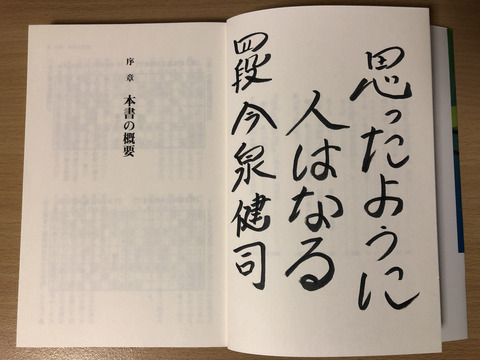 思ったように
人はなる
四段 今泉健司
序章 本書の概要